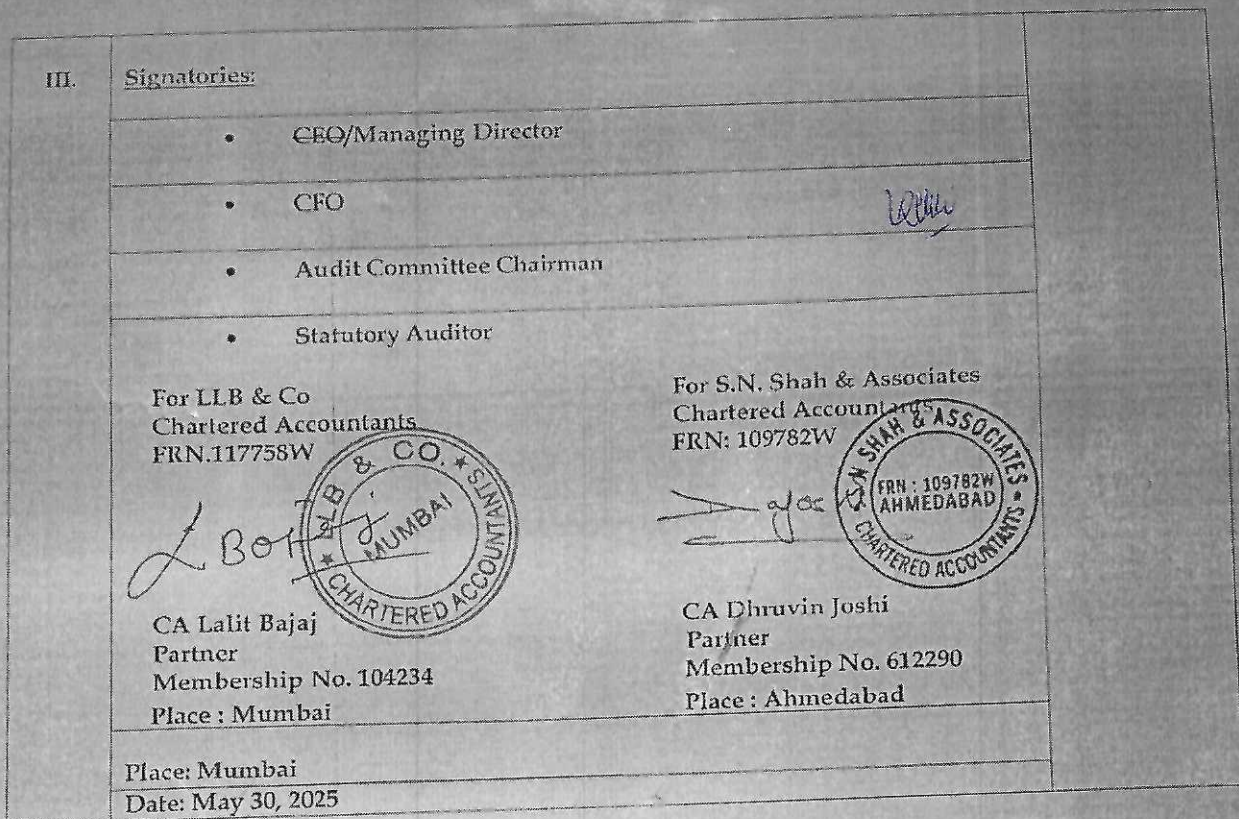 III. Signatories:
• CEO/Managing Director
• CFO
• Audit Committee Chairman
• Statutory Auditor
For LLB & Co
Chartered Accountants
FRN.117758W
LLB & CO. * CHARTERED ACCOUNTANTS *
MUMBAI
CA Lalit Bajaj
Partner
Membership No. 104234
Place : Mumbai
For S.N. Shah & Associates
Chartered Accountants
FRN: 109782W
N SHAH & ASSOCIATES • CHARTERED ACCOUNTANTS •
FRN : 109782W
AHMEDABAD
CA Dhruvin Joshi
Partner
Membership No. 612290
Place : Ahmedabad
Place: Mumbai
Date: May 30, 2025